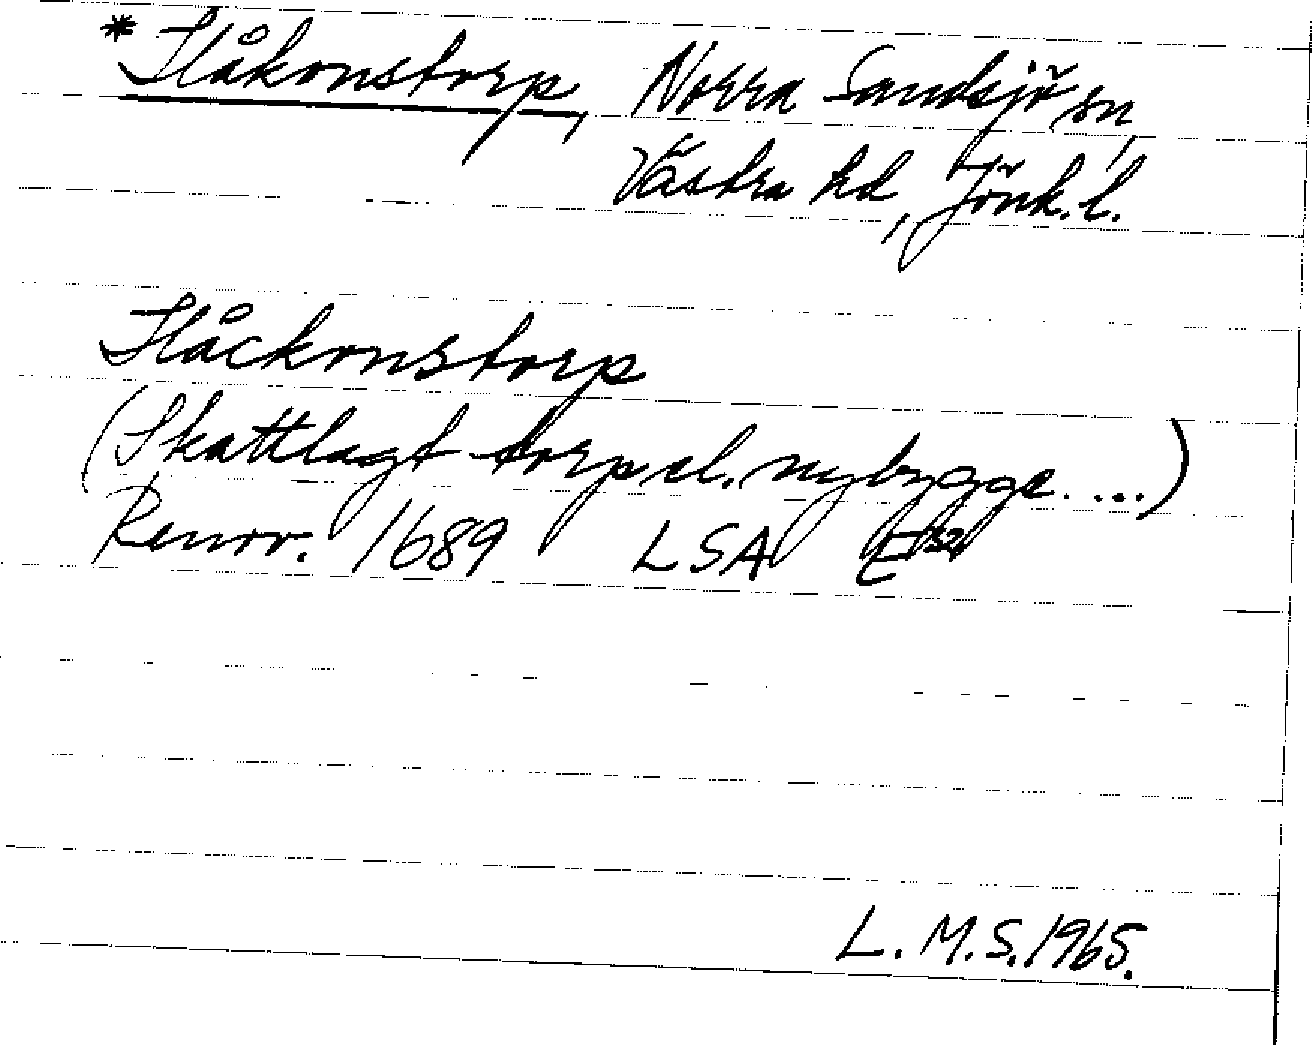 *Håkonstorp, Norra Sandsjö sn,
Västra hd, Jönk. l.
Håckonstorp
(Skattlagt torp el. nybygge. ...)
Renov. 1689 LSA
L. M. S. 1965.